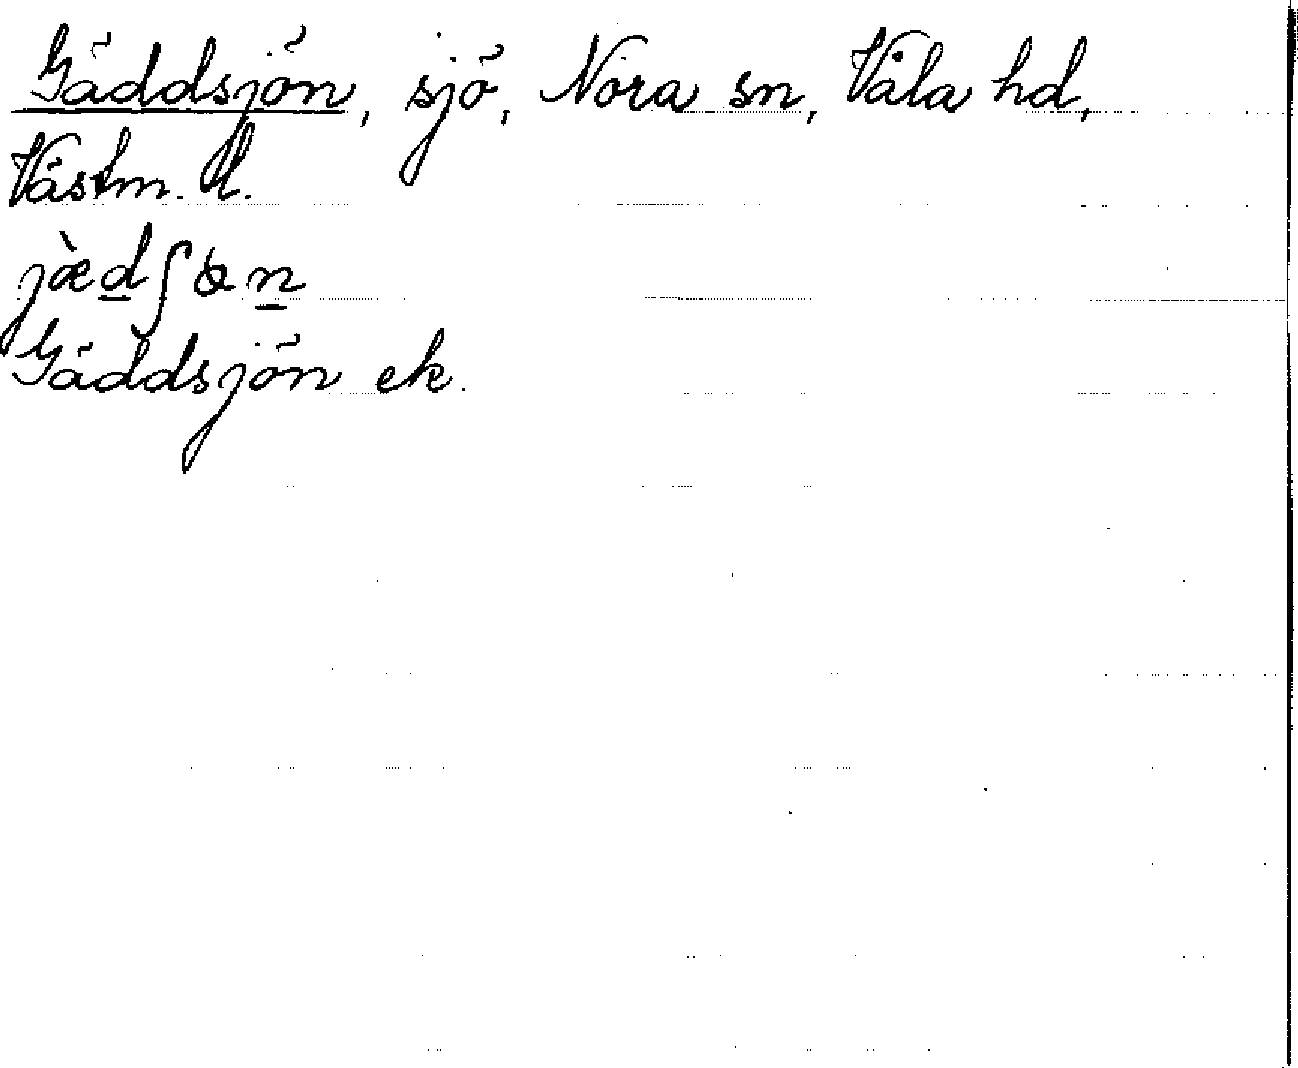 Gäddsjön, sjö, Nora sn, Våla hd,
Västm. l.
jæ̀d̲ʃꝏn̲
Gäddsjön ek.